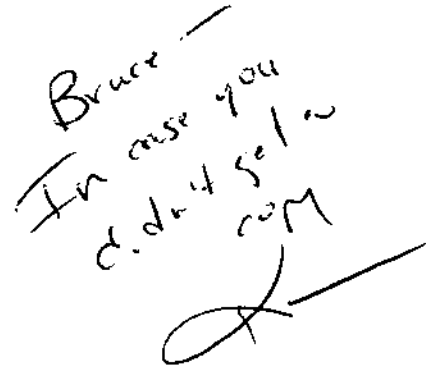 Bruce —
In case you
didn't get a
copy